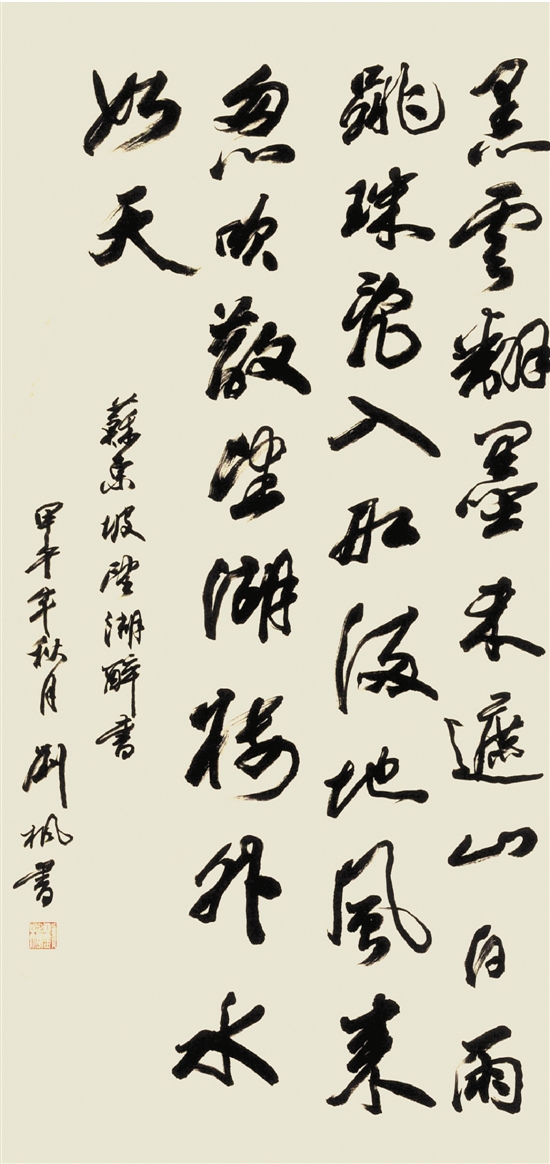 黑雲翻墨未遮山白雨
跳珠亂入船地風來
忽吹散望湖樓外水
如天
蘇東坡望湖醉書
甲午年秋月劉楓書